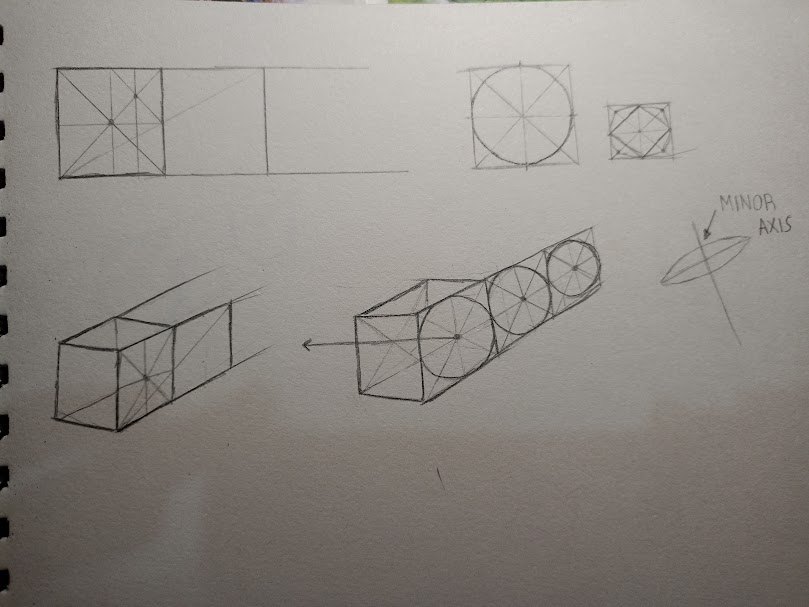 MINOR
AXIS